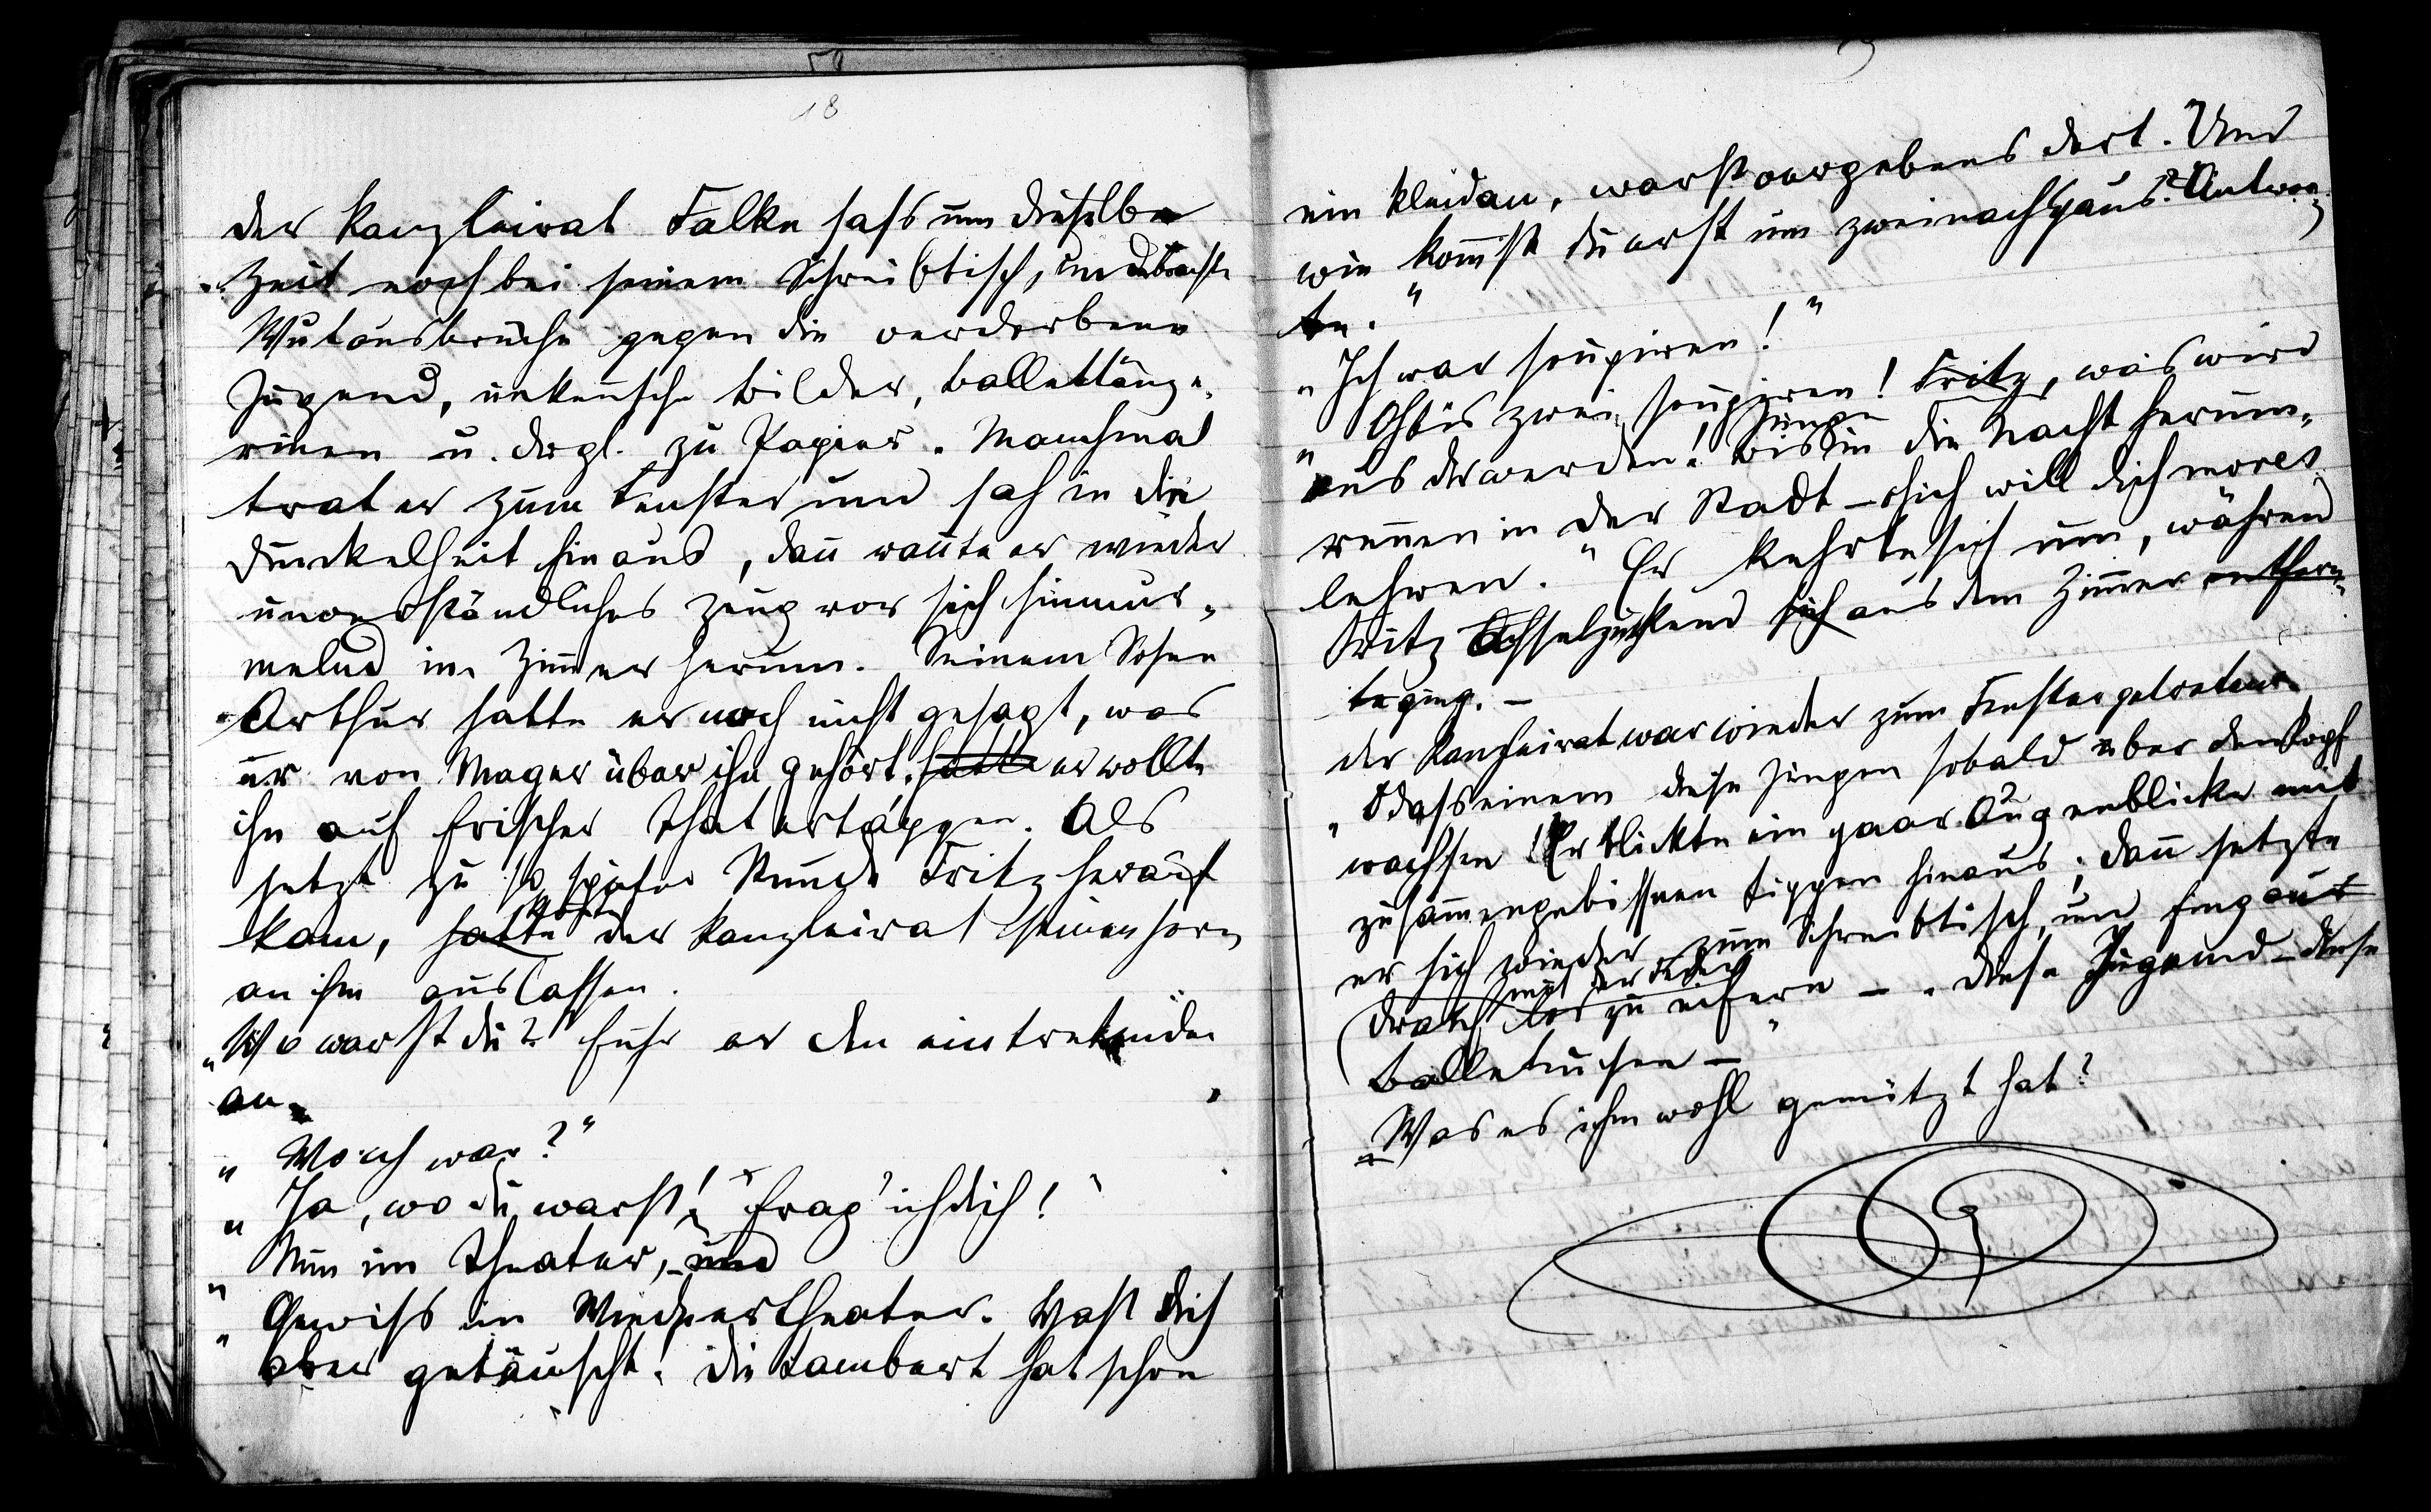 18
der Kanzleirat Falke sass um dieselbe
Zeit noch bei seinem Schreibtisch, und brachte
Wutausbrüche gegen die verdorbene
Jugend, unkeusche Bilder, Ballettänze-
rinen u. drgl. zu Papier. Manchmal
trat er zum Fenster und sah in die
Dunkelheit hinaus, dann rannte er wieder
unverständliches Zeug vor sich hinmur-
melnd im Zimmer herum. Seinem Sohne
Arthur hatte er noch nicht gesagt, was
er von Mager über ihn gehört, hatte er wollte
ihn auf frischer That ertappen. Als
jetzt zu so später Stunde Fritz herauf
kam, hatte der Kanzleirat seinen Zorn
an ihm auslassen.
„Wo warst du?" fuhr er den eintretenden
an.
„Wo ich war?"
„Ja, wo du warst! frag' ich dich!"
„Nun im Theater, und
„Gewiss im Wiednertheater. Hast dich
aber getäuscht! Die Lambert hat schon
ein Kleid an, warst vergebens dort. Und
wie kommst du erst um zwei nachhaus? Antwor-
te."
„Ich war soupiren!"
„Oh bis zwei soupiren! Fritz, was wird
aus dir werden! Junge bis in die Nacht herum-
rennen in der Stadt – oh ich will dich mores
lehren." Er kehrte sich um, während
Fritz achselzuckend sich aus dem Zimmer entfern-
te ging. –
der Kanzleirat war wieder zum Fenster getreten.
„O dass einem diese Jungen sobald über den Kopf
wachsen! Er blickte ein paar Augenblicke mit
zusammengebissenen Lippen hinaus; dann setzte
er sich wieder zum Schreibtisch, und fing aus
mit der Feder
drauf los zu eifern – „diese Jugend – diese
Balletrusen –"
„Was es ihm wohl genützt hat?